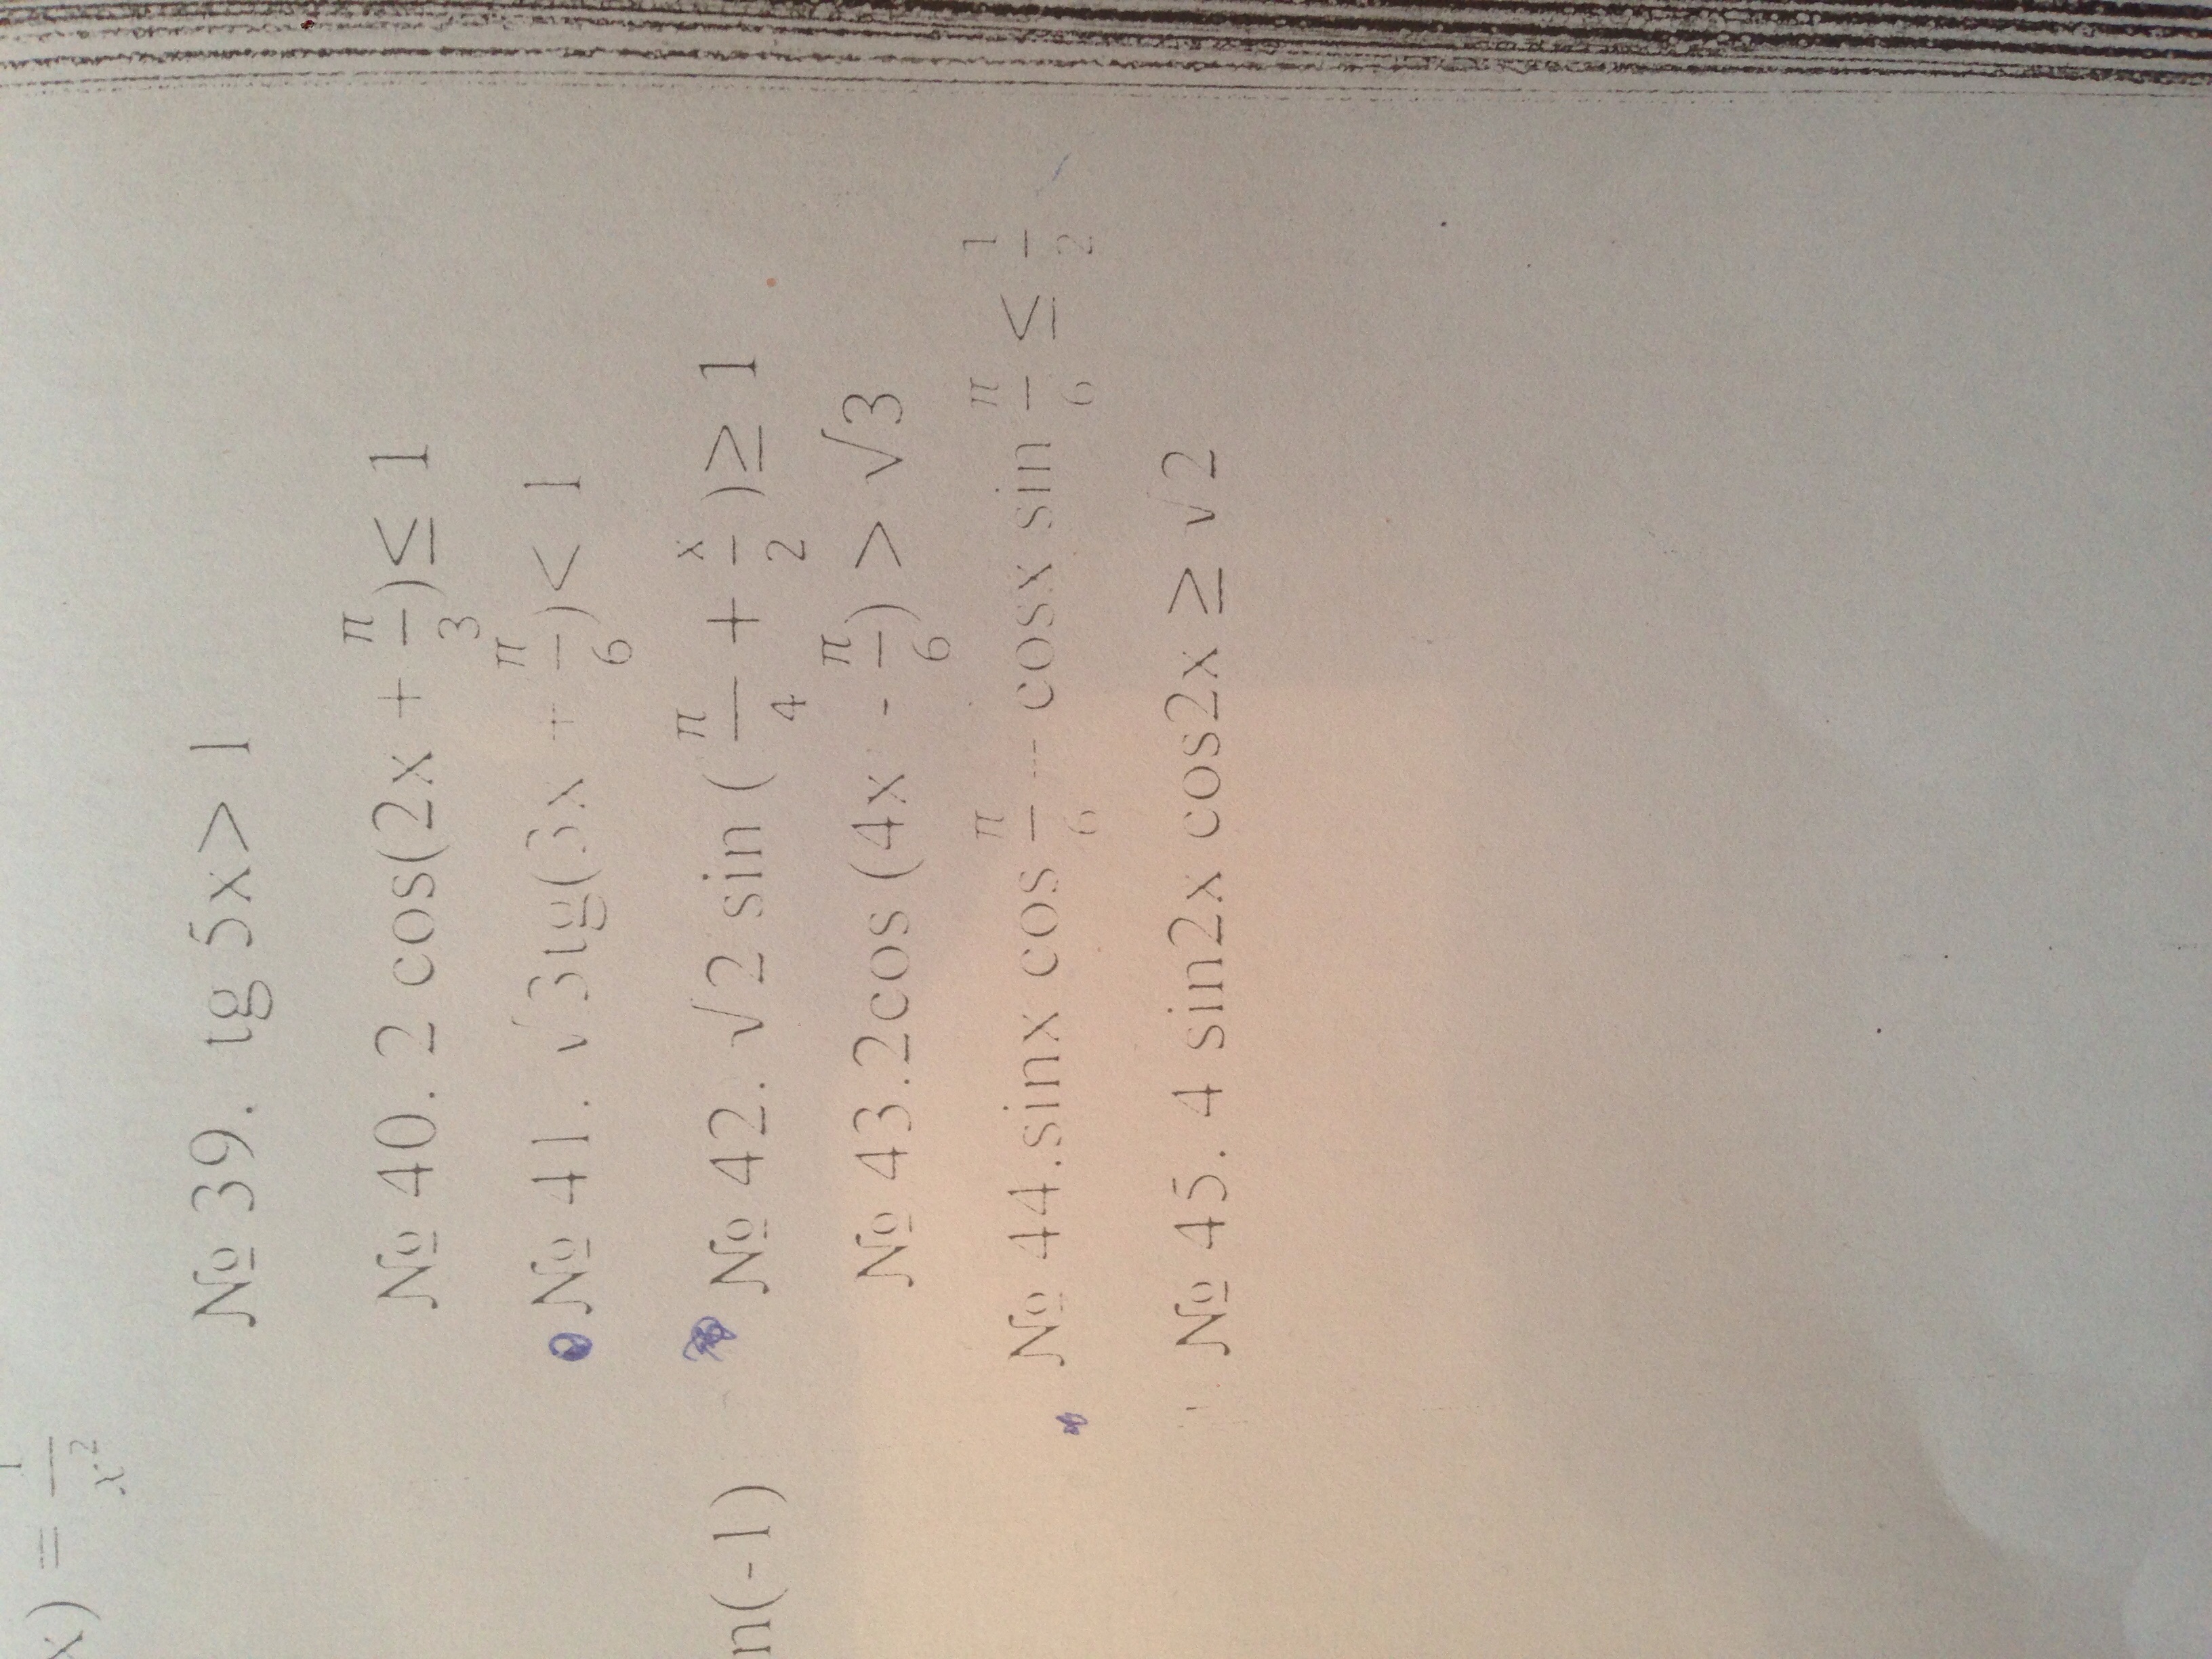 x) = 1/x²
№ 39. tg 5x > 1
№ 40. 2 cos(2x + π/3) ≤ 1
№ 41. √3tg(3x + π/6) < 1
n(-1)
№ 42. √2 sin (π/4 + x/2) ≥ 1
№ 43.2cos (4x - π/6) > √3
№ 44.sinx cos π/6 - cosx sin π/6 ≤ 1/2
№ 45. 4 sin2x cos2x ≥ √2